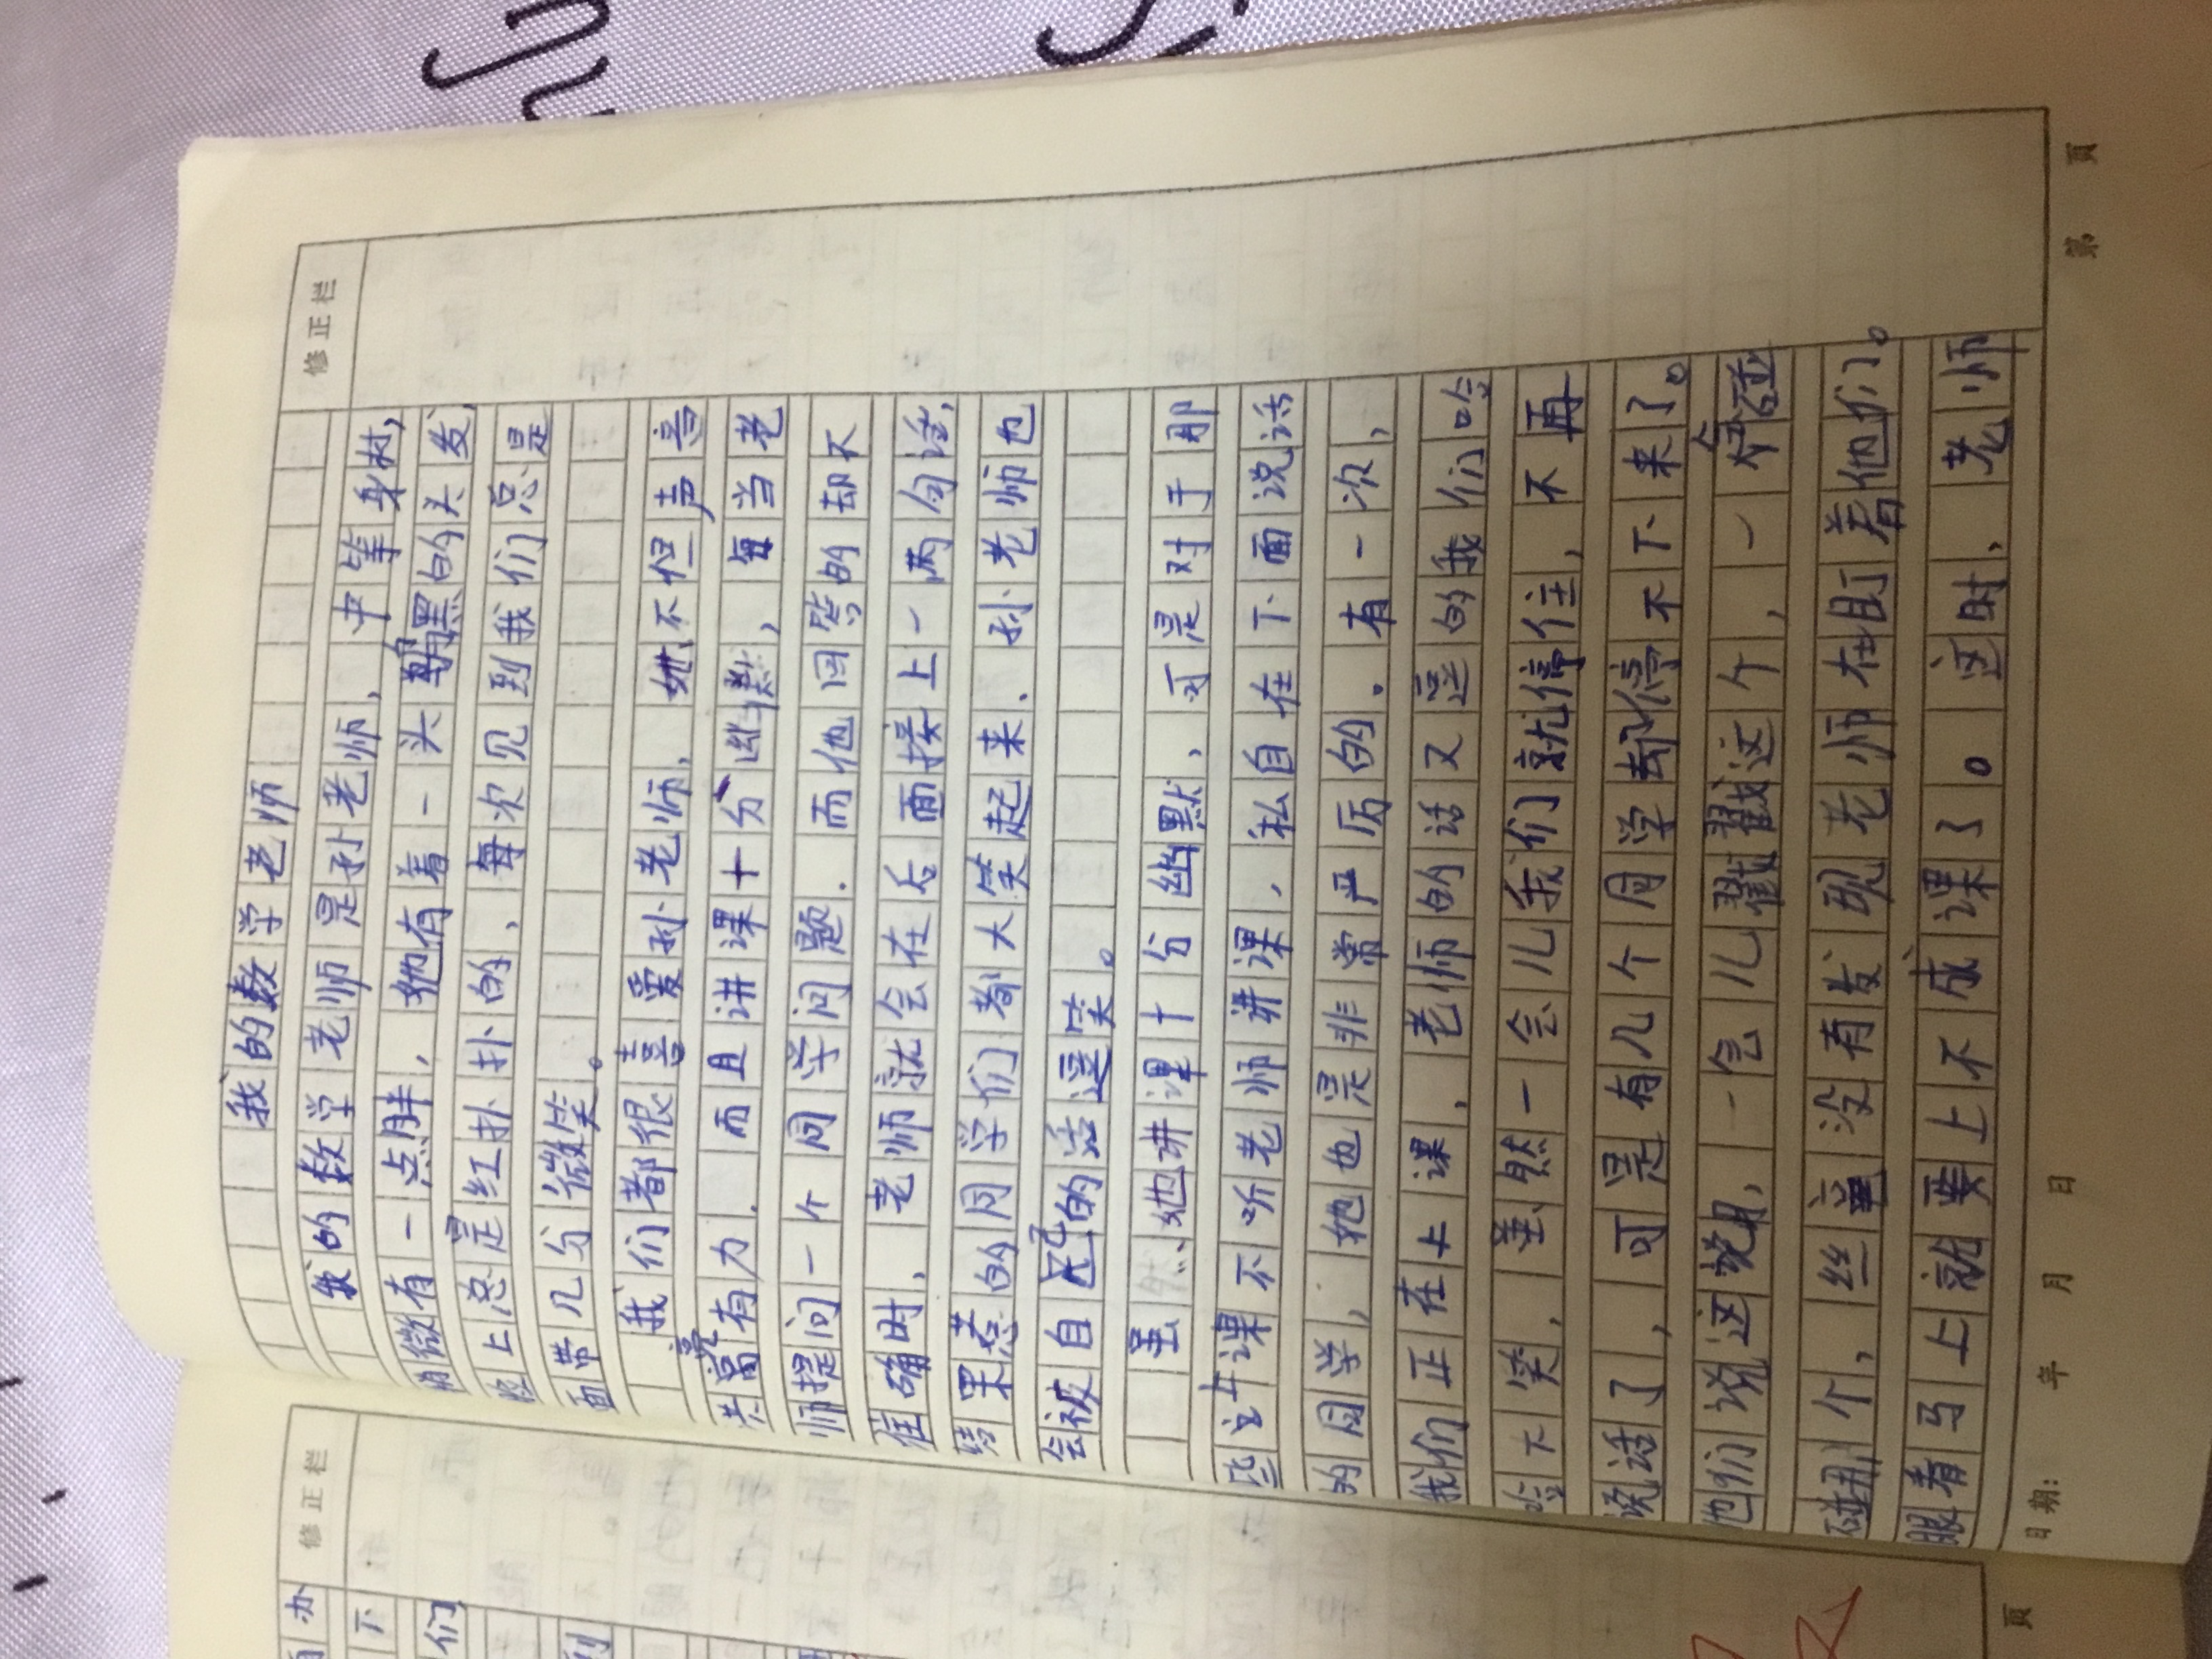 修正栏
我的数学老师
我的数学老师是孙老师，中等身材，
稍微有一点胖，她有着一头乌黑的头发，
脸上总是红扑扑的，每次见到我们总是
面带几分微笑。
我们都很喜爱孙老师，她不但声音
洪亮有力，而且讲课十分幽默，每当老
师提问一个同学问题，而他回答的却不
准确时，老师就会在后面接上一两句话，
结果惹的同学们都大笑起来，孙老师也
会被自己的话逗笑。
虽然她讲课十分幽默，可是对于那
些上课不听老师讲课，私自在下面说话
的同学，她也是非常严厉的。有一次，
我们正在上课，老师的话又逗的我们哈
哈大笑，虽然一会儿我们就停住，不再
说话了，可是有几个同学却停不下来了。
他们说这说，一会儿戳戳这个，一会碰
碰那个，丝毫没有发现老师在盯着他们。
眼看马上就要上不成课了。这时，老师
日期： 年 月 日
第 页
修正栏
办
不
们
利
页